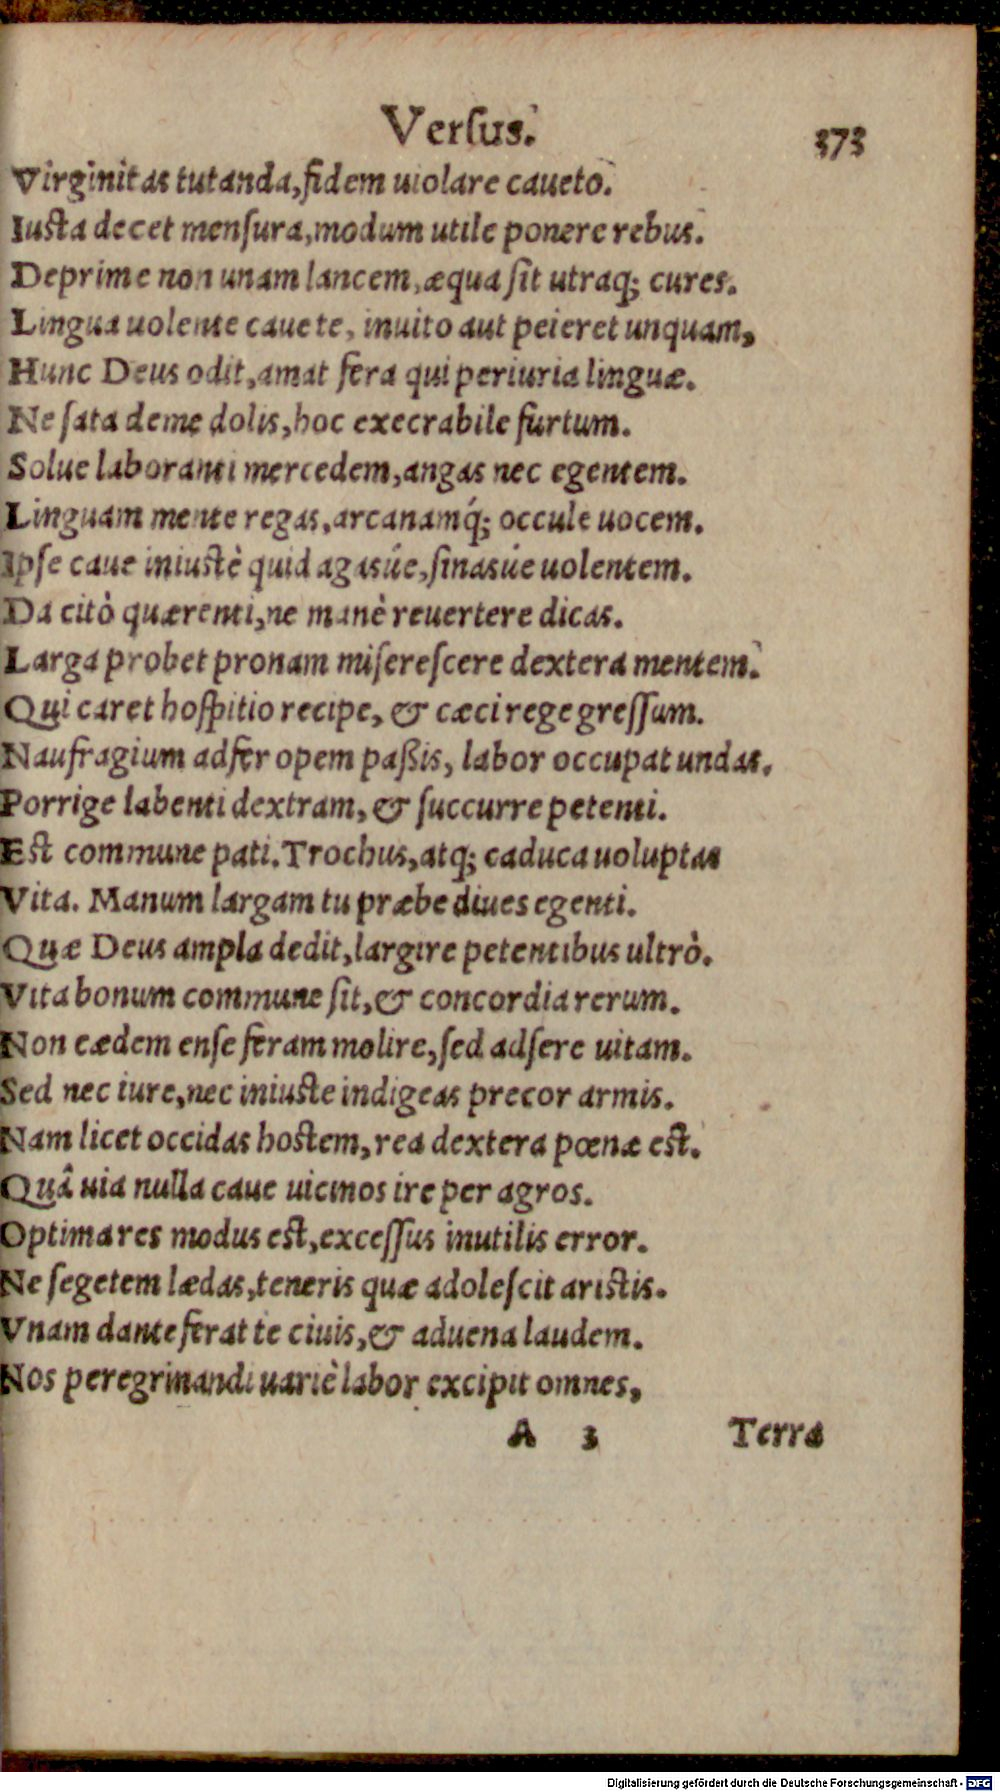 Verſus. 373
Virginitas tutanda, fidem uiolare caueto.
Iuſta decet menſura, modum utile ponere rebus.
Deprime non unam lancem, æqua ſit utraq; cures.
Lingua uolente caue te, inuito aut peieret unquam,
Hunc Deus odit, amat fera qui periuria linguæ.
Ne ſata deme dolis, hoc execrabile furtum.
Solue laboranti mercedem, angas nec egentem.
Linguam mente regas, arcanamq́; occule uocem.
Ipſe caue iniuſtè quid agasúe, ſinasúe uolentem.
Da citò quærenti, ne manè reuertere dicas.
Larga probet pronam miſereſcere dextera mentem.
Qui caret hoſpitio recipe, & cæci rege greſſum.
Naufragium adfer opem paßis, labor occupat undas.
Porrige labenti dextram, & ſuccurre petenti.
Eſt commune pati. Trochus, atq; caduca uoluptas
Vita. Manum largam tu præbe diues egenti.
Quæ Deus ampla dedit, largire petentibus ultrò.
Vita bonum commune ſit, & concordia rerum.
Non cædem enſe feram molire, ſed adſere uitam.
Sed nec iure, nec iniuſte indigeas precor armis.
Nam licet occidas hoſtem, rea dextera pœnæ eſt.
Quâ uia nulla caue uicinos ire per agros.
Optima res modus eſt, exceſſus inutilis error.
Ne ſegetem lædas, teneris quæ adoleſcit ariſtis.
Vnam dante ferat te ciuis, & aduena laudem.
Nos peregrinandi uariè labor excipit omnes,
A 3 Terra
Digitalisierung gefördert durch die Deutsche Forschungsgemeinschaft - DFG